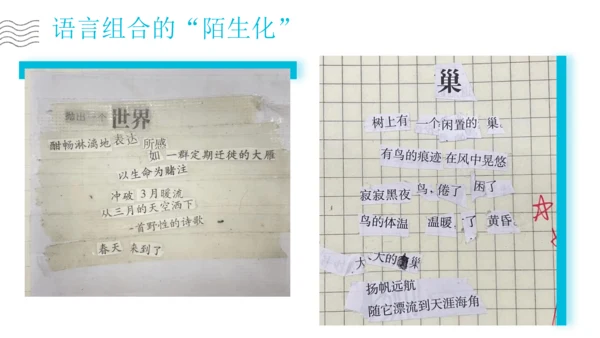 语言组合的“陌生化”
给出一个世界
酣畅淋漓地表达所感
如一群定期迁徙的大雁
以生命为赌注
冲破3月暖流
从三月的天空洒下
一首野性的诗歌
春天来到了
巢
树上有一个闲置的巢
有鸟的痕迹在风中晃悠
寂寂黑夜鸟、倦了困了
鸟的体温温暖了黄昏
大、大的巢
扬帆远航
随它漂流到天涯海角